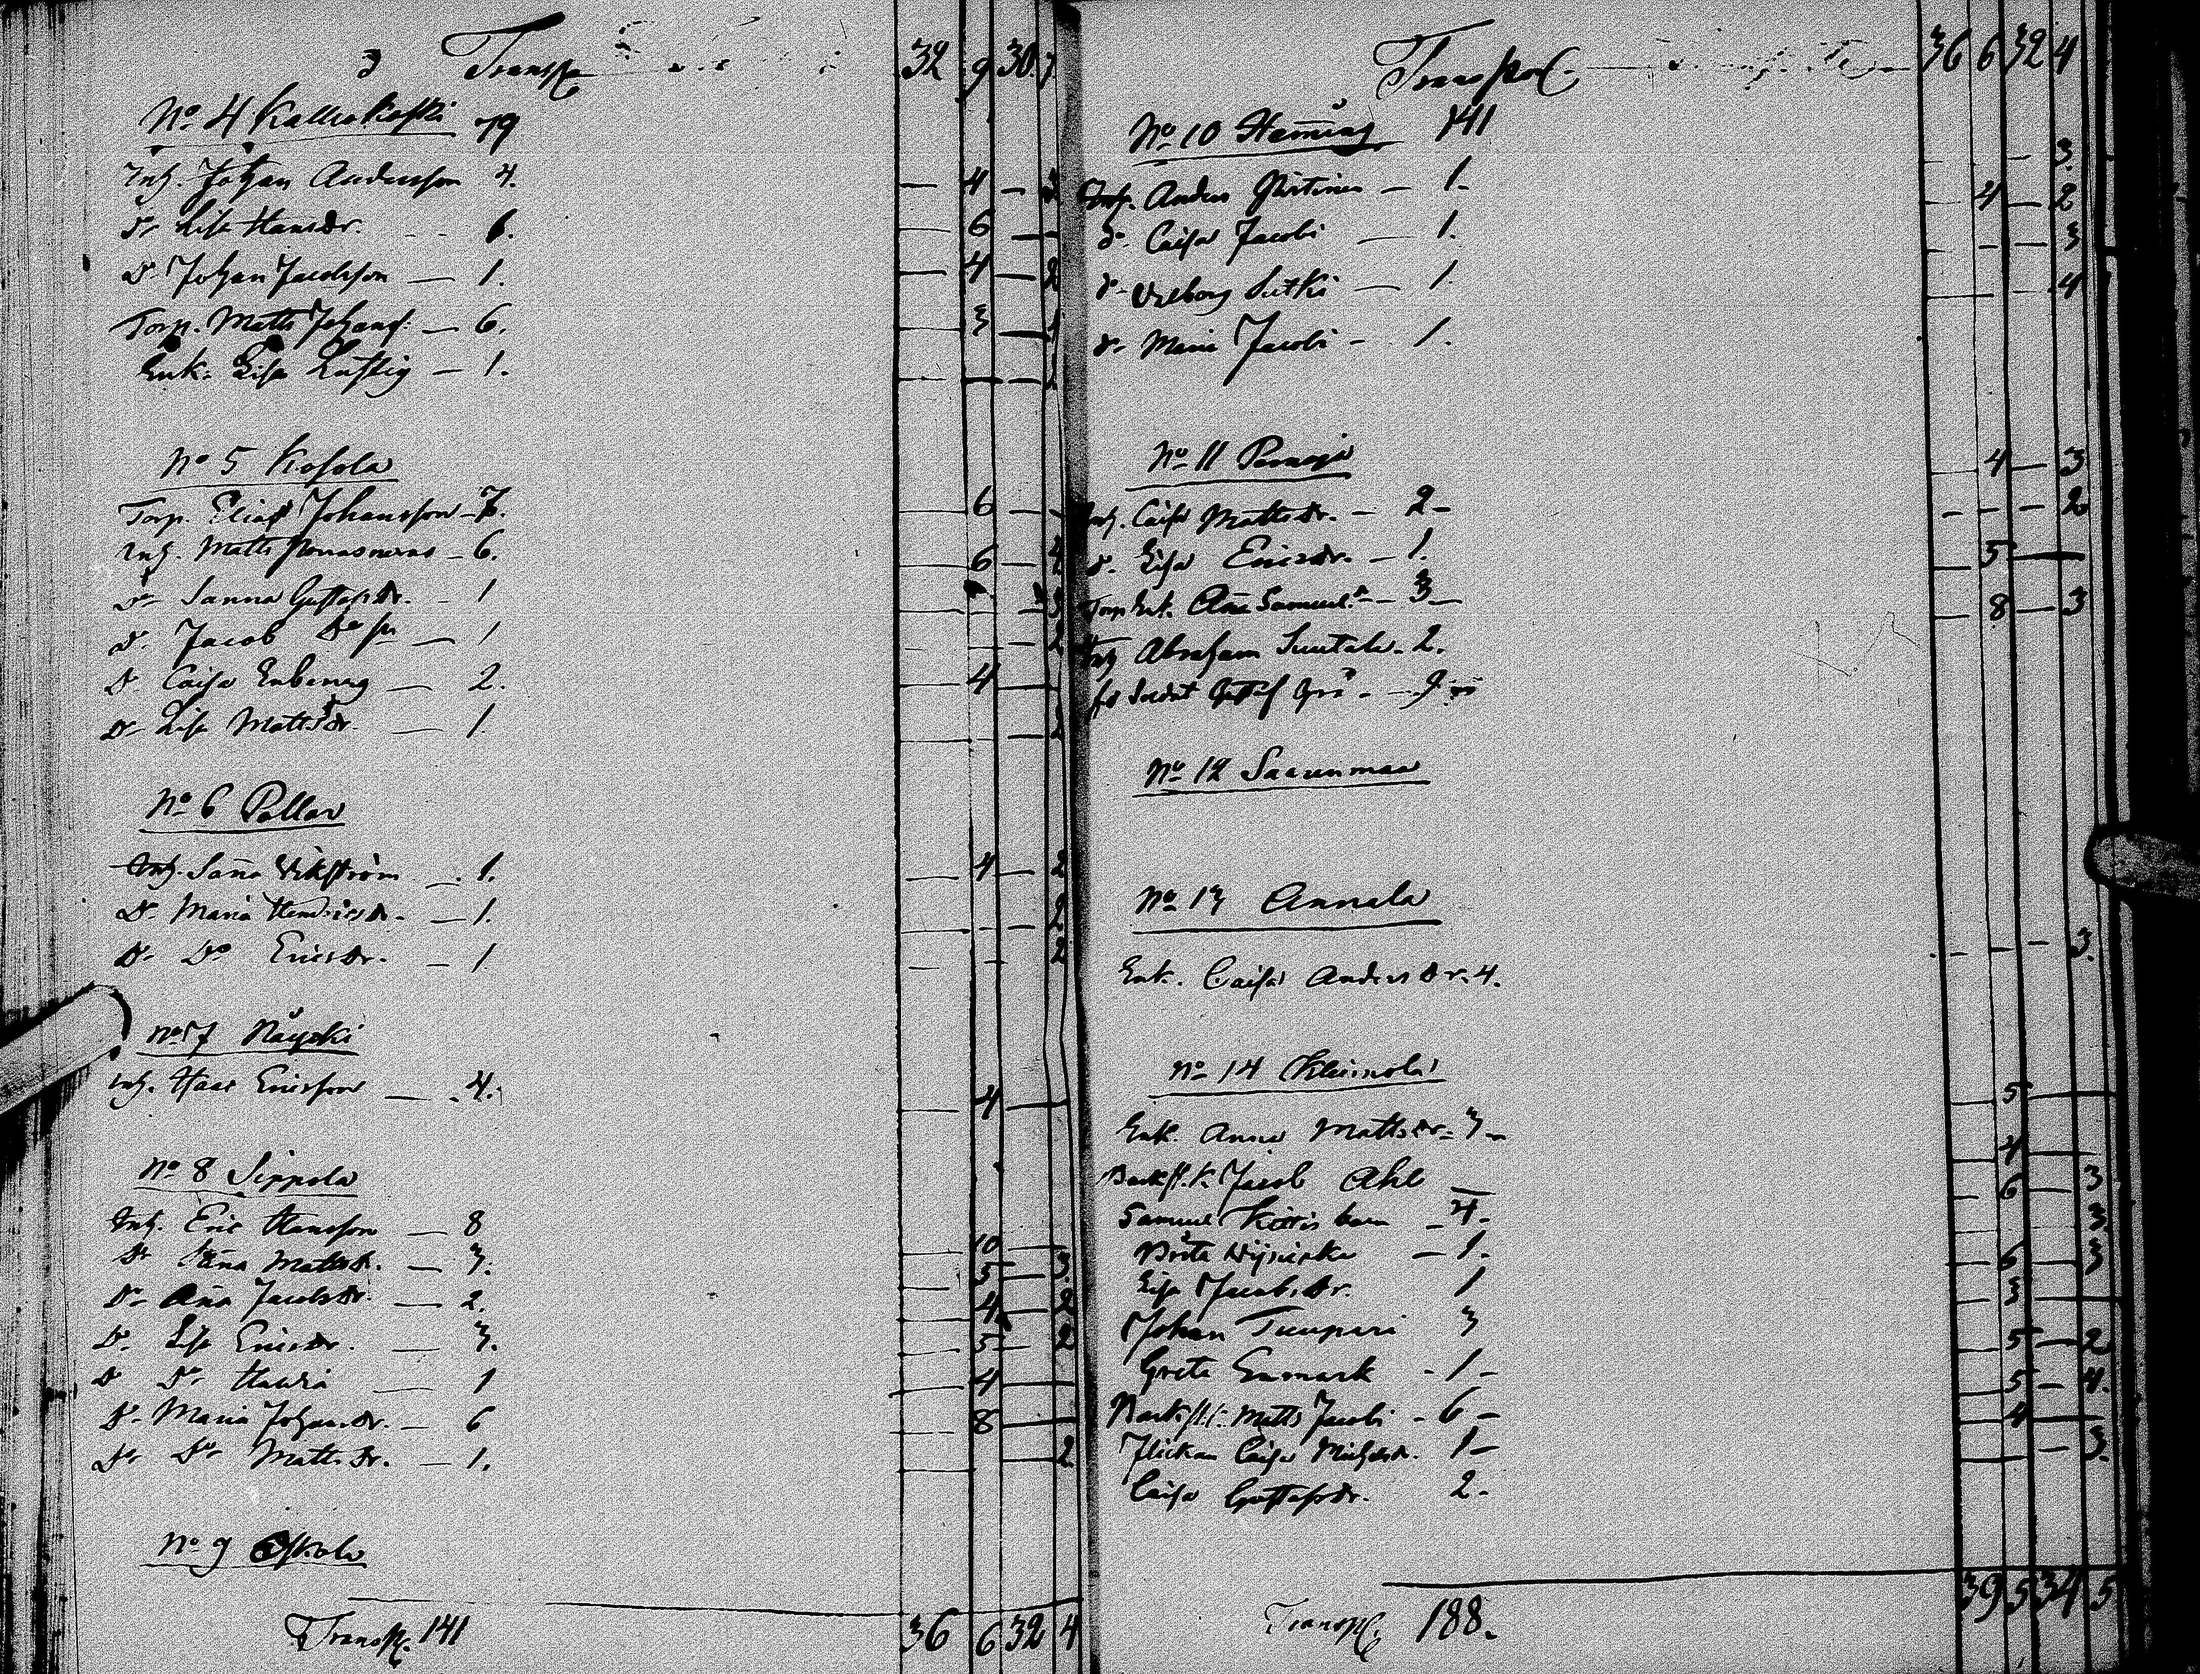 Transp. 32 9 30 7
No 4 Kalliokoski 79
Inh. Johan Andersson 4. — 4 — 2
Do Lisa Hansdr. 6. — 6 —
Do Johan Jacobsson — 1. — 4 — 2
Torp. Matts Johansf. — 6. — 3 — 1
Enk. Lisa Lustig — 1. — — — 2
No 5 Kosola
Torp. Elias Johansson — 7. — 6 — -
Inh. Matts — 6. — 6 — 2
Do Sanna Gustafsdr. - 1 — — 3
Do Jacob — 1 — — 2
Do Caisa Enbenag — 2. — 4 —
Do Lisa Mattsdr. — 1. — — 2
No 6 Pollar
Inh. Sana Wikström — 1. — 4 — 2
Do Maria Hendricsdr. — 1. — - - 2
Do Do Ericsdr. — 1 — - 2
No 7 Näyski
Inh. Hans Ericsson — 4. — 4 —
No 8 Sippola
Inh. Eric Hansson — 8 — 10 —
Do Sana Mattsdr. — 3. — 5 — 3.
Do Ana Jacobsdr. — 2. — 4 — 2
Do Lisa Ericsdr. — 3. — 5 — 2
Do Do Hawia — 1 — 4 —
Do Maria Johansdr. — 6 — 8 —
Do Do Mattsdr. — 1. — — 2
No 9 Oskola
Transp. 141 36 6 32 4
Transport. 36 6 32 4
No 10 Haming 141
— 3.
Inh. Anders — 1. — 4 — 2
Do Caisa Jacobi — 1. — - - 3
Do Walborg Sutki — 1. — — 4
Do Maria Jacobi — 1.
No 11 Pernaja — 4 — 3
Inh. Caisa Mattsdr. — 2 — — - - 2
Do Lisa Ericsdr. — 1. — 5 —
Torp Enk. Ana Samuels — 3 — — 8 — 3
Inh Abraham — 2.
fd Soldat Gustaf Grå — 9
No 12 Saarenmaa
No 13 Annala
— - - 3.
Enk. Caisa Andersdr. 4.
No 14 Kleimola
— 5 —
Enk. Anna Mattsdr. 3 —
— 4 —
Backst.k. Jacob Ahl — — 6 — 3
Samuel Kittis barn — 4 - — 3
Brita — 1 - — 6 — 3
Lisa Jacobsdr. 1 — 3 —
Johan Tuupari 3 — 5 — 2
Greta Enmark - 1 - — 5 — 4.
Backst.k. Matts Jacobi - 6 - — 4 —
Flickan Caisa Michelsdr. 1 - — — 3.
Caisa Gustafsdr. 2 -
Transp. 188. 39 5 34 5